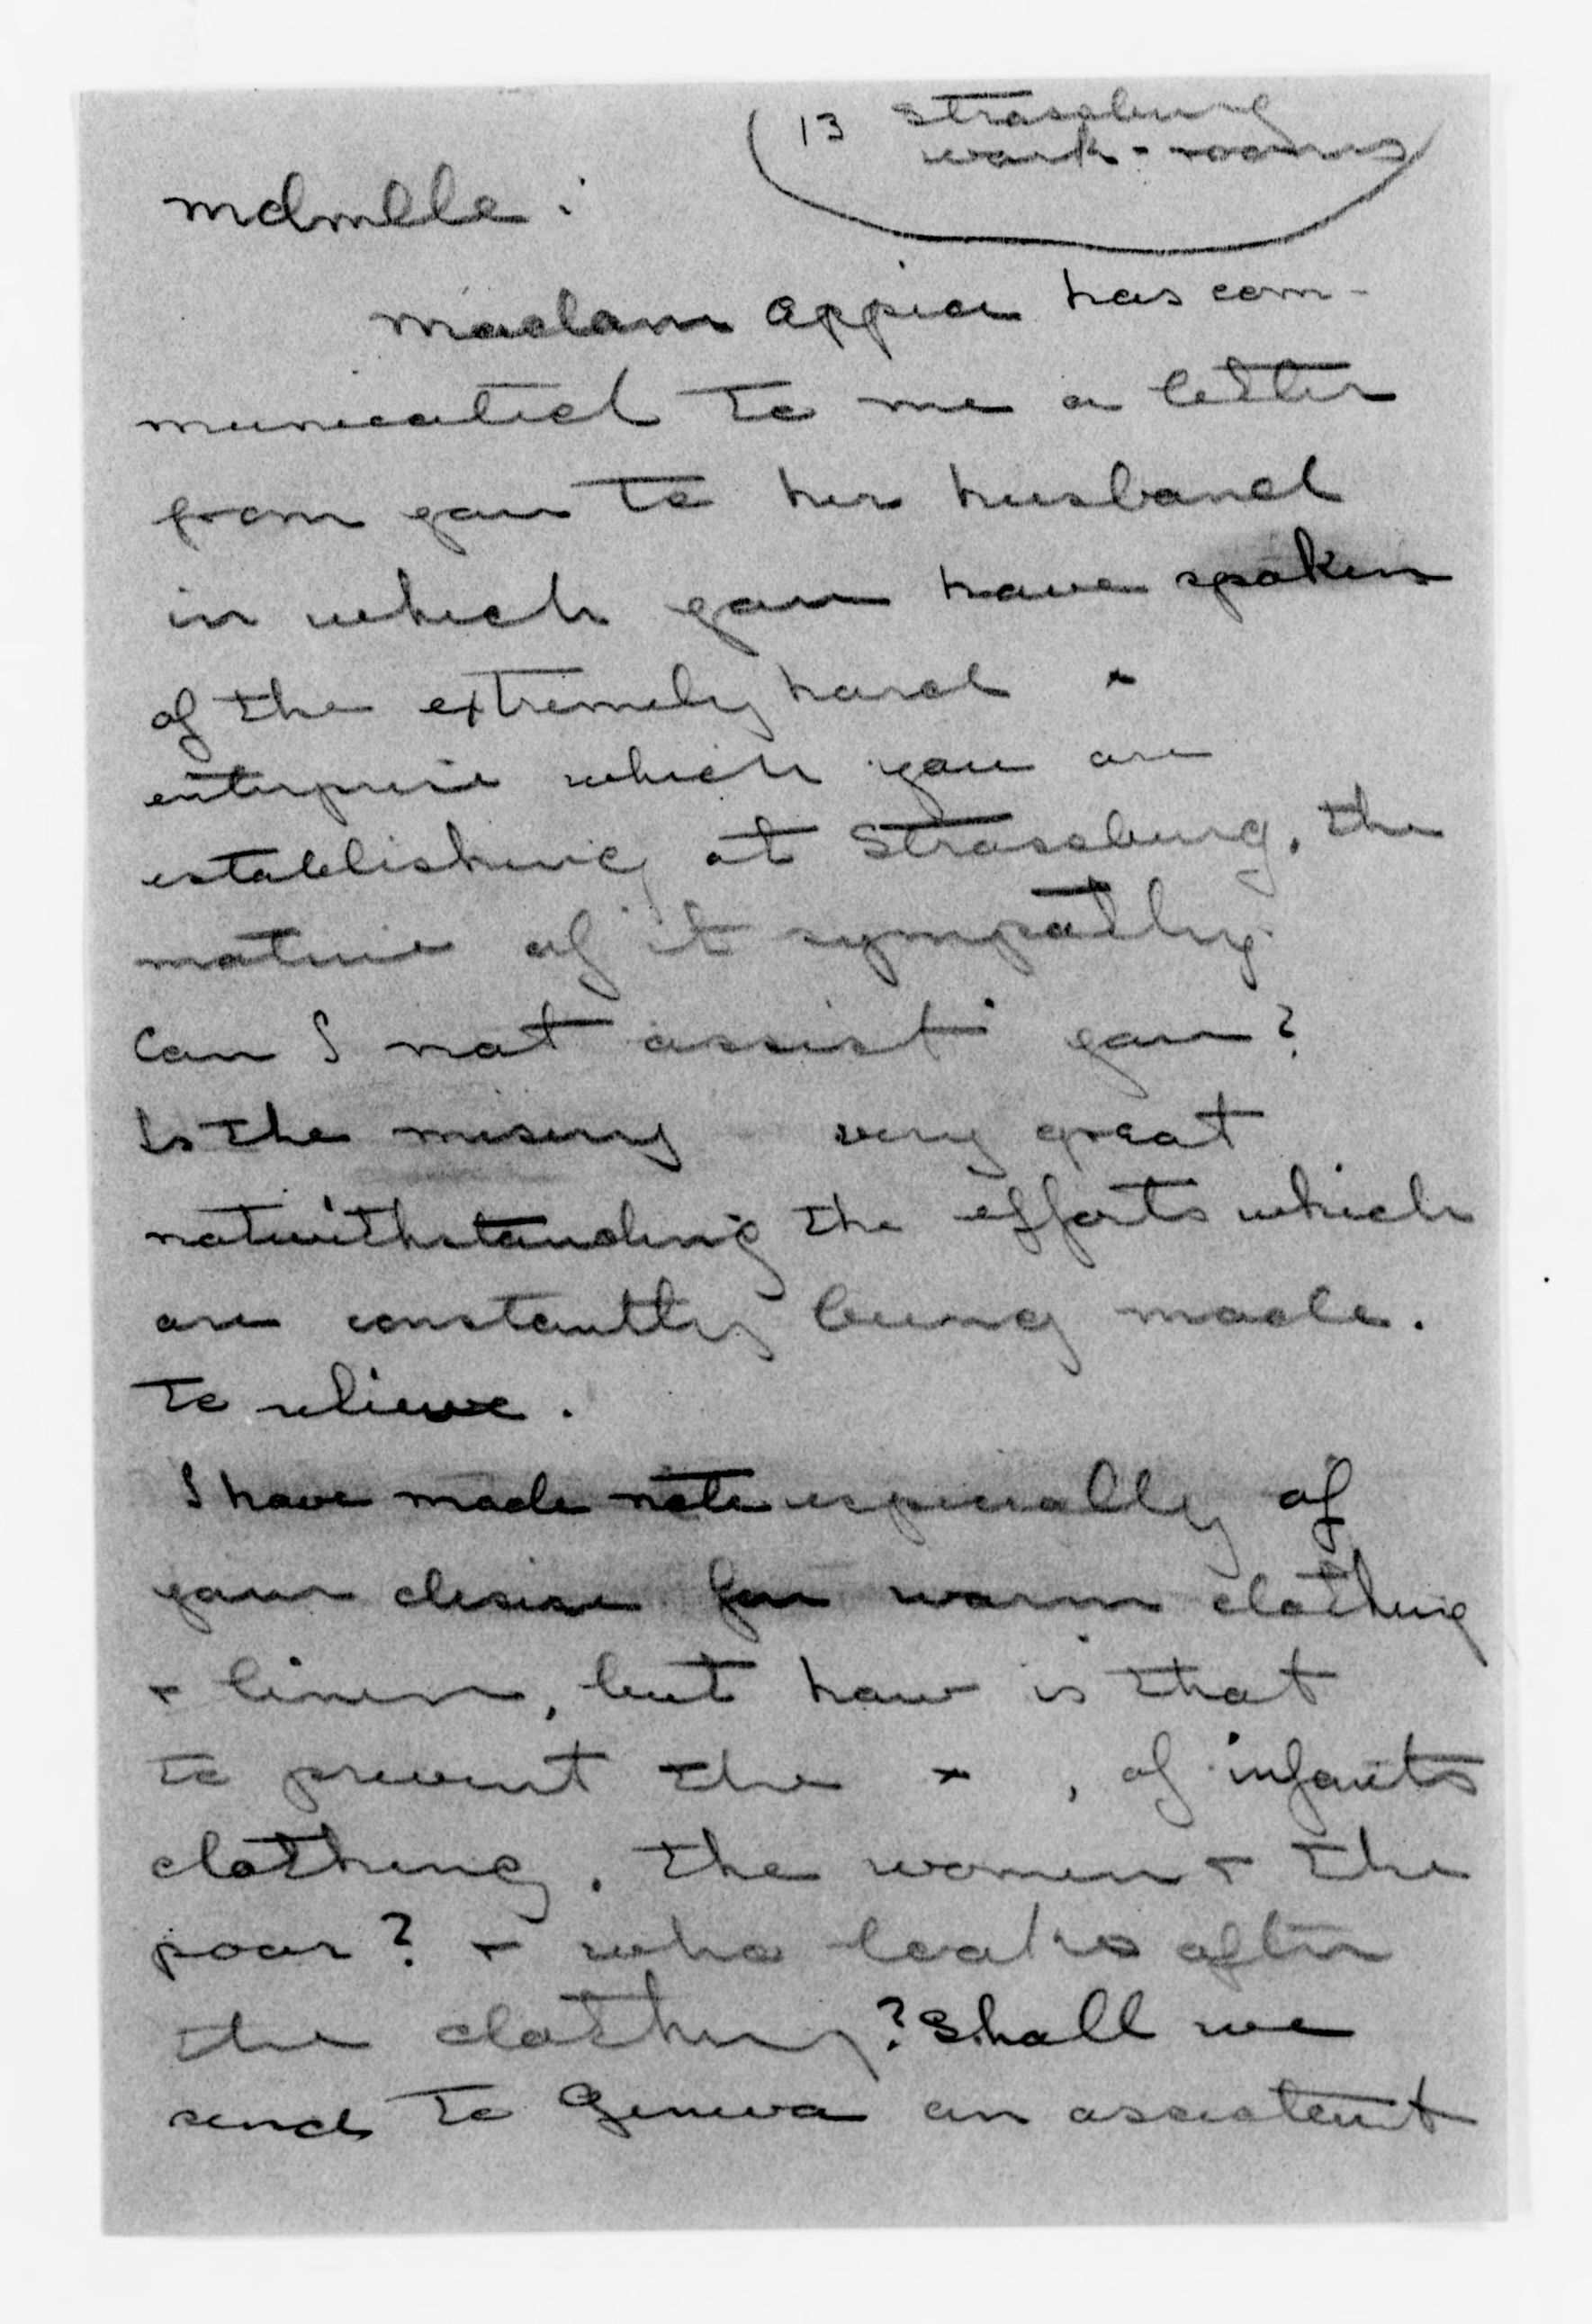 (13 Strassburg
work-rooms)
Mdmlle:
Madam Appia has com-
municated to me a letter
from you to her husband
in which you have spoken
of the extremely hard x
enterprise which you are
establishing at Strassburg. the
nature of it sympathy.
Can I not assist you?
Is the misery very great
notwithstanding the efforts which
are constantly being made.
to relieve.
I have made note especially of
your desire for warm clothing
& linen, but how is that
to prevent the x , of infants
clothing. the women & the
poor? & who looks after
the clothing? Shall we
send to Geneva an assistant